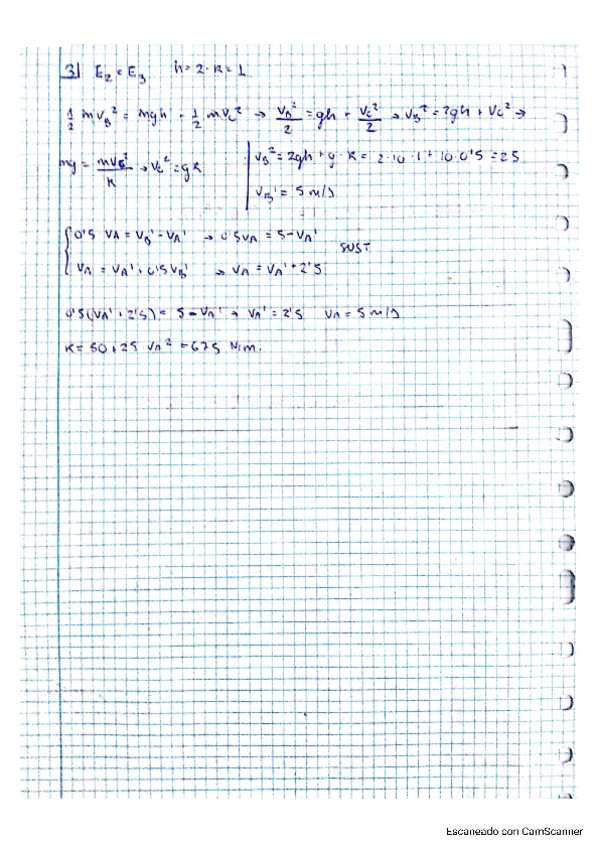 3) E₂ = E₃ h = 2 · R = 1
½ m v_B'² = mgh + ½ m v_C² → v_B'²/2 = gh + v_C²/2 → v_B'² = 2gh + v_C² →
mg = m v_C²/R → v_C² = gR v_B'² = 2gh + g · R = 2 · 10 · 1 + 10 · 0'5 = 25
v_B' = 5 m/s
0'5 v_A = v_B' - v_A' → 0'5 v_A = 5 - v_A'
SUST
v_A = v_A' + 0'5 v_B' → v_A = v_A' + 2'5
0'5 (v_A' + 2'5) = 5 - v_A' → v_A' = 2'5 v_A = 5 m/s
K = 50 + 25 v_A² = 675 N/m.
Escaneado con CamScanner